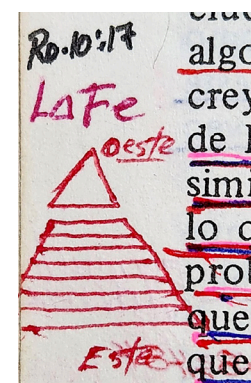 Ro.10:17
La Fe
oeste
Este
algo
crey
de
simi
lo
que
que